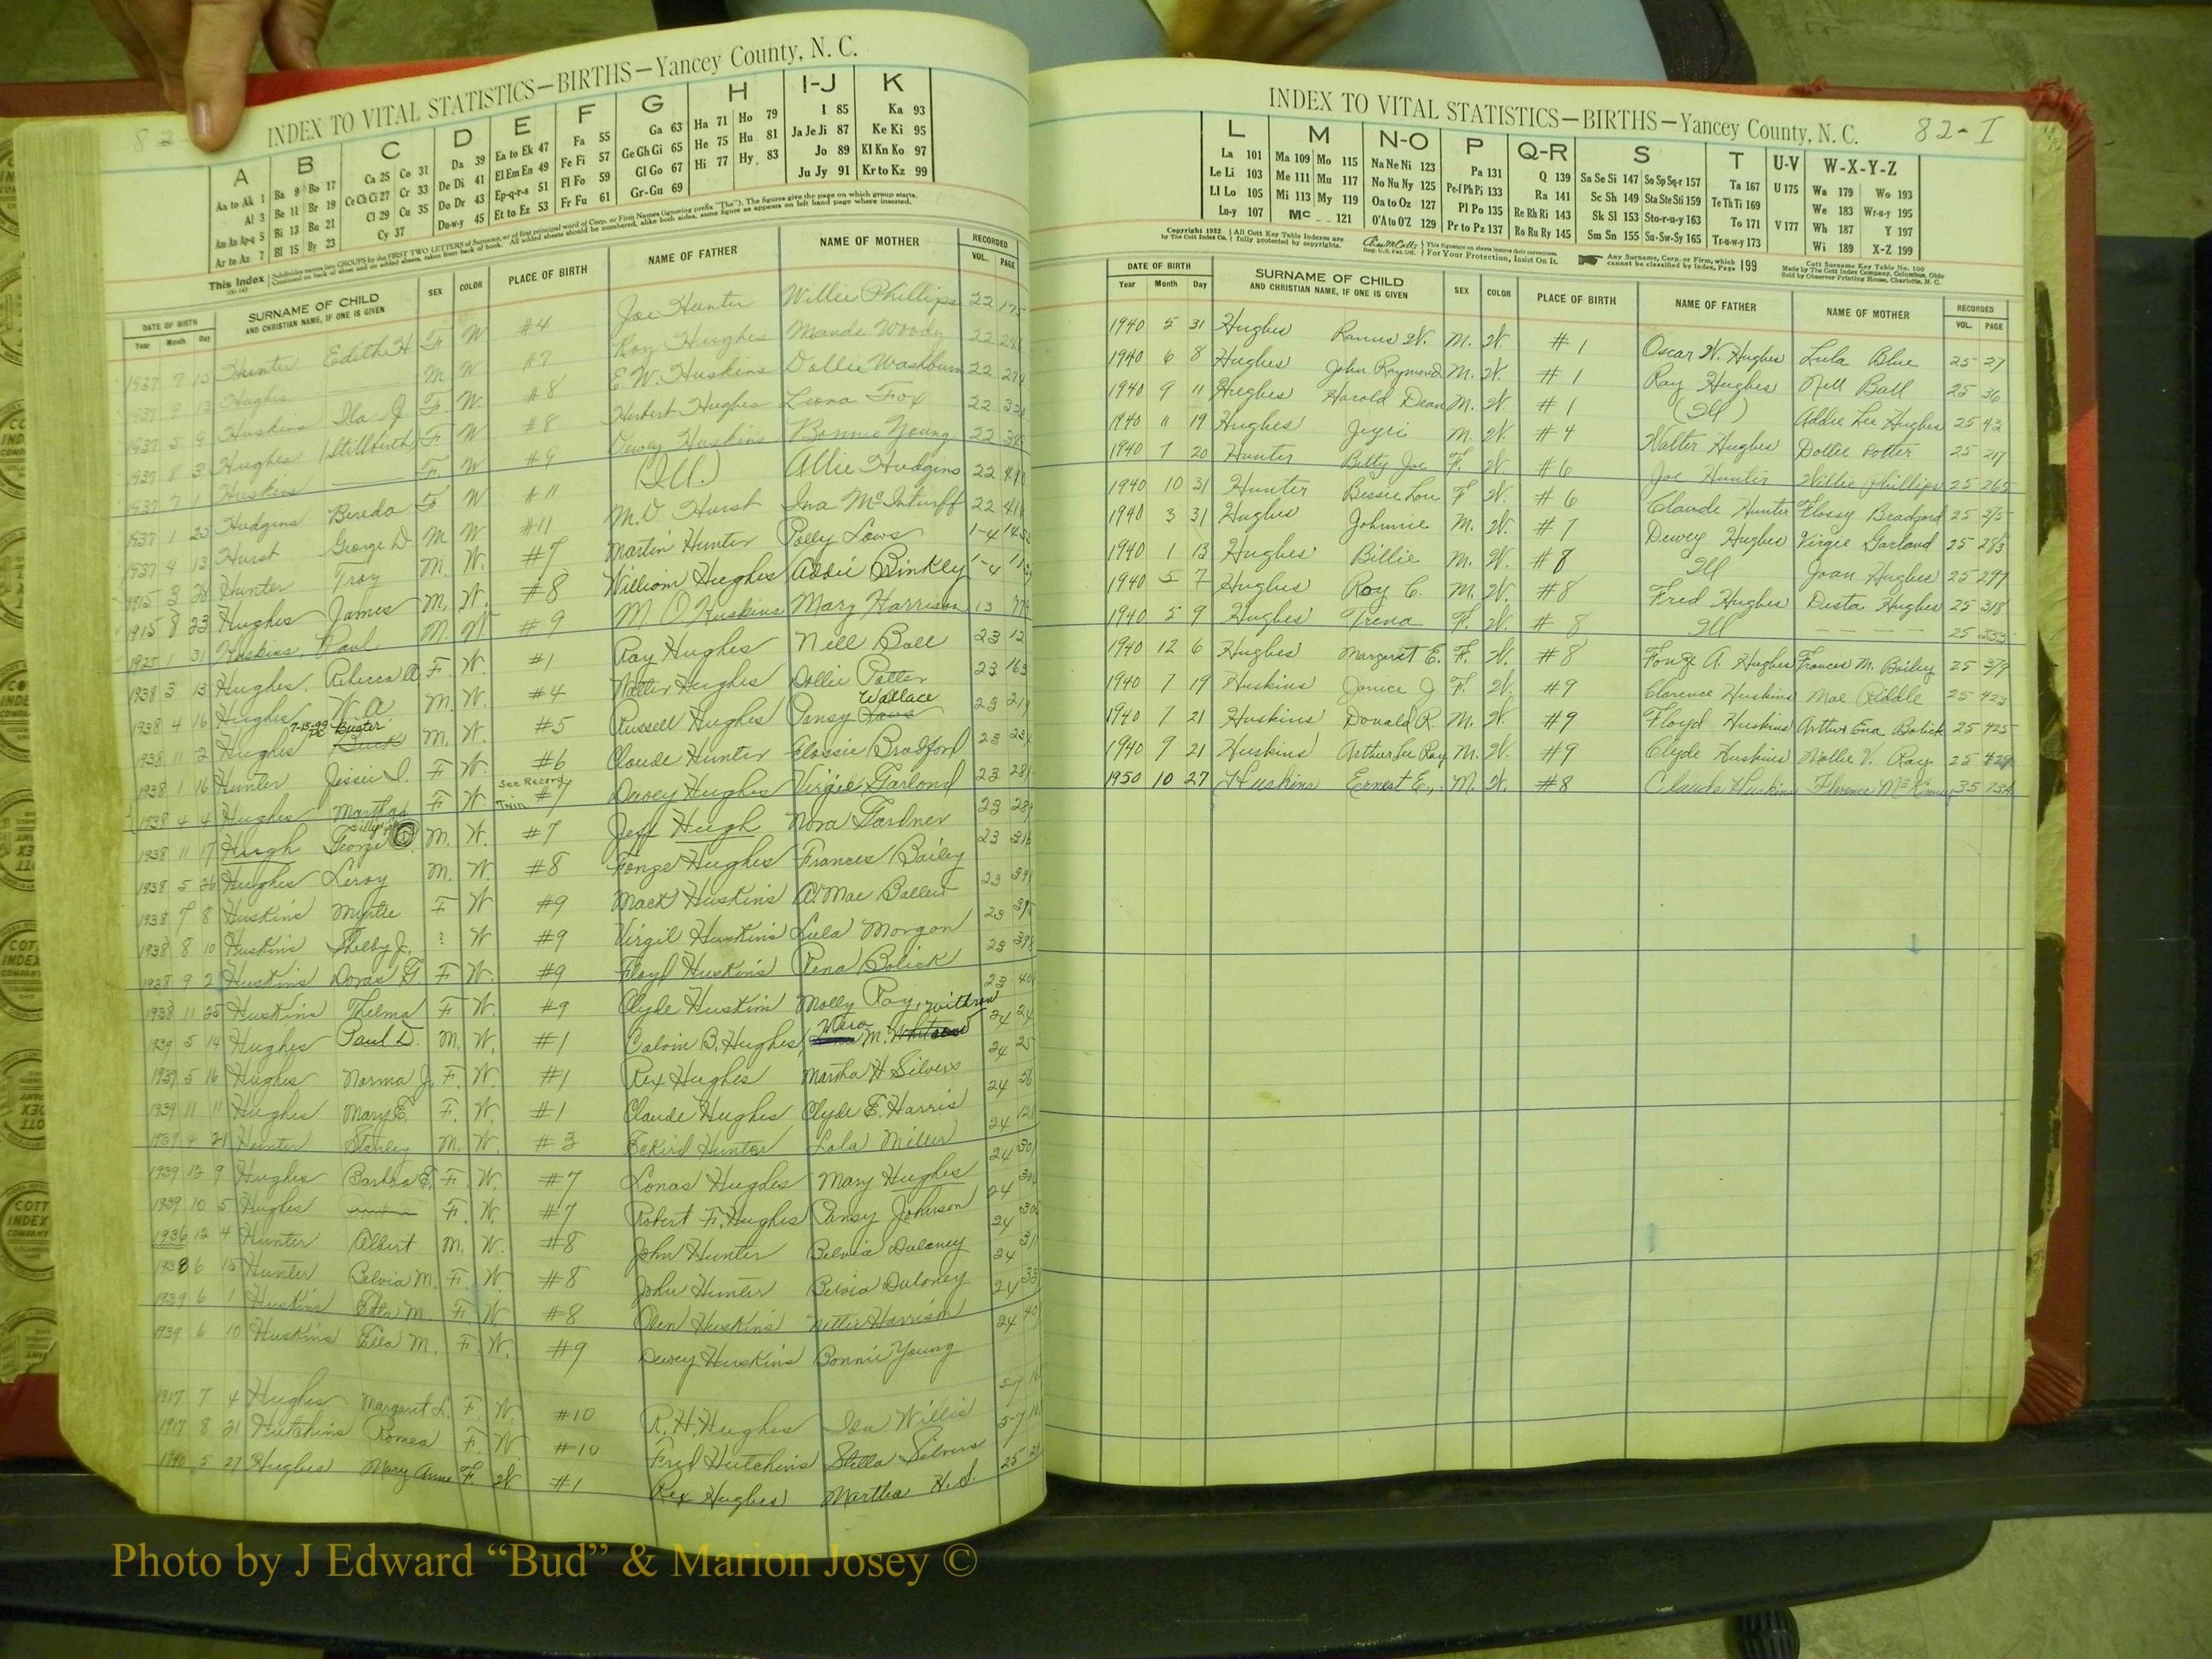 INDEX TO VITAL STATISTICS—BIRTHS—Yancey County, N. C.
82
A B C D E F G H I-J K
Aa to Ak 1 Ba 9 Bo 17 Ca 25 Co 31 Da 39 Ea to Ek 47 Fa 55 Ga 63 Ha 71 Ho 79 I 85 Ka 93
Al 3 Be 11 Br 19 Ce Ch Ci 27 Cr 33 De Di 41 El Em En 49 Fe Fi 57 Ge Gh Gi 65 He 75 Hu 81 Ja Je Ji 87 Ke Ki 95
Am An Ap-q 5 Bi 13 Bu 21 Cl 29 Cu 35 Do Dr 43 Ep-q-r-s 51 Fl Fo 59 Gl Go 67 Hi 77 Hy 83 Jo 89 Kl Kn Ko 97
Ar to Az 7 Bl 15 By 23 Cy 37 Du-w-y 45 Et to Ez 53 Fr Fu 61 Gr-Gu 69 Ju Jy 91 Kr to Kz 99
This Index Subdivides names into GROUPS by the FIRST TWO LETTERS of Surname, or of first principal word of Corp. or Firm Names (ignoring prefix "The"). The figures give the page on which group starts.
Continued on back of sheet and on added sheets, taken from back of book. All added sheets should be numbered, alike both sides, same figure as appears on left hand page where inserted.
DATE OF BIRTH SURNAME OF CHILD SEX COLOR PLACE OF BIRTH NAME OF FATHER NAME OF MOTHER RECORDED
Year Month Day AND CHRISTIAN NAME, IF ONE IS GIVEN VOL. PAGE
1937 7 15 Hunter Edith H. F. W #4 Joe Hunter Willie Phillips 22 175
1937 9 13 Hughes M W #7 Roy Hughes Maude Woody 22
1937 5 9 Huskins Ila J. F. W. #8 E. W. Huskins Dollie Washburn 22
1937 8 3 Hughes (Stillbirth) F W #8 Herbert Hughes Leona Fox 22
1937 7 1 Huskins F. W #9 Dewey Huskins Bonnie Young 22
1937 1 23 Hudgins Bereda F W #11 (Ill.) Allie Hudgins 22
1937 4 13 Hurst George D M W #11 M. D Hurst Ina McInturff 22
1915 3 28 Hunter Troy M. W. #7 Martin Hunter Polly Laws 1-4
1915 8 23 Hughes James M. W. #8 William Hughes Addie Binkley 1-4
1925 1 31 Huskins, Paul M. W #9 M. O Huskins Mary Harrison 13
1938 3 13 Hughes. Rebecca A F. W. #1 Ray Hughes Nell Ball 23 12
1938 4 16 Hughes W. A M. W. #4 Walter Hughes Dollie Potter 23 163
7-15-99 PC Buster Wallace
1938 11 2 Hughes Buck M. W. #5 Russell Hughes Pansy Laws 23
1938 1 16 Hunter Jessie I. F W. #6 Claude Hunter Flossie Bradford 23
See Record
1938 4 4 Hughes Martha F W. Twin #7 Dewey Hughes Virgie Garland 23 281
Billy
1938 11 17 Hugh George M. W. #7 Jeff Hugh Nora Gardner 23
1938 5 26 Hughes Leroy M. W. #8 Fonze Hughes Frances Bailey 23 316
1938 7 8 Huskins Myrtle F W #9 Mack Huskins A. Mae Ballew 23
1938 8 10 Huskins Shelby J. ? W #9 Virgil Huskins Lula Morgan 23
1938 9 2 Huskins Doras G. F W. #9 Floyd Huskins Rena Bolick 23
1938 11 25 Huskins Thelma F W. #9 Clyde Huskins Molly Ray 23
Withrow
1939 5 14 Hughes Paul D. M. W. #1 Calvin B. Hughes M. 24 24
1939 5 16 Hughes Norma J. F. W. #1 Rex Hughes Martha H Silvers 24 25
1939 11 11 Hughes Mary E. F. W. #1 Claude Hughes Clyde E. Harris 24
1939 4 21 Hunter Stanley M. W. #3 Eckird Hunter Lola Miller 24
1939 12 9 Hughes Barbra E. F. W. #7 Lonas Hughes Mary Hughes 24
1939 10 5 Hughes F. W. #7 Robert F. Hughes Pansy Johnson 24
1936 12 4 Hunter Albert M. W. #8 John Hunter Belvia Dulaney 24
1938 6 15 Hunter Belvia M. F. W #8 John Hunter Belvia Duloney 24
1939 6 1 Huskins Etta M. F W #8 Olen Huskins Nettie Harrison 24
1939 6 10 Huskins Ella M. F. W. #9 Dewey Huskins Bonnie Young 24
1917 7 4 Hughes Margaret L. F. W. #10 R. H. Hughes Ida Willis 5-7
1917 8 21 Hutchins Romea F. W #10 Fred Hutchins Stella Silvers 5-7
1940 5 27 Hughes Mary Anne F. W #1 Rex Hughes Martha H. S. 25
INDEX TO VITAL STATISTICS—BIRTHS—Yancey County, N. C. 82-I
L M N-O P Q-R S T U-V W-X-Y-Z
La 101 Ma 109 Mo 115 Na Ne Ni 123 Pa 131 Q 139 Sa Se Si 147 So Sp Sq-r 157 Ta 167 U 175 Wa 179 Wo 193
Le Li 103 Me 111 Mu 117 No Nu Ny 125 Pe-f Ph Pi 133 Ra 141 Sc Sh 149 Sta Ste Sti 159 Te Th Ti 169 We 183 Wr-u-y 195
Ll Lo 105 Mi 113 My 119 Oa to Oz 127 Pl Po 135 Re Rh Ri 143 Sk Sl 153 Sto-r-u-y 163 To 171 V 177 Wh 187 Y 197
Lu-y 107 Mc 121 O'A to O'Z 129 Pr to Pz 137 Ro Ru Ry 145 Sm Sn 155 Su-Sw-Sy 165 Tr-u-w-y 173 Wi 189 X-Z 199
Copyright 1932 by The Cott Index Co. All Cott Key Table Indexes are fully protected by copyrights. This Signature on sheets insures their correctness. For Your Protection, Insist On It. Any Surname, Corp. or Firm, which cannot be classified by Index, Page 199 Cott Surname Key Table No. 100
Reg. U.S. Pat. Off. Made by The Cott Index Company, Columbus, Ohio
Sold by Observer Printing House, Charlotte, N. C.
DATE OF BIRTH SURNAME OF CHILD SEX COLOR PLACE OF BIRTH NAME OF FATHER NAME OF MOTHER RECORDED
Year Month Day AND CHRISTIAN NAME, IF ONE IS GIVEN VOL. PAGE
1940 5 31 Hughes W. M. W #1 Oscar W. Hughes Lula Blue 25 27
1940 6 8 Hughes John Raymond M. W. #1 Ray Hughes Nell Ball 25 36
1940 9 11 Hughes Harold Dean M. W. #1 (Ill) Addie Lee Hughes 25 42
1940 11 19 Hughes M. W. #4 Walter Hughes Dollie Potter 25 217
1940 7 20 Hunter Betty Joe F. W. #6 Joe Hunter Willie Phillips 25 265
1940 10 31 Hunter Bessie Lou F W. #6 Claude Hunter Flossy Bradford 25 275
1940 3 31 Hughes Johnnie M. W. #7 Dewey Hughes Virgie Garland 25 283
1940 1 13 Hughes Billie M. W. #8 Ill Joan Hughes 25 297
1940 5 7 Hughes Roy C. M. W. #8 Fred Hughes Desta Hughes 25 318
1940 5 9 Hughes Trena F. W. #8 Ill — — — — 25 335
1940 12 6 Hughes Margaret E. F. W. #8 Fonze A. Hughes Frances M. Bailey 25 379
1940 7 19 Huskins Janice J F. W. #9 Clarence Huskins Mae Riddle 25 423
1940 7 21 Huskins Donald R. M. W. #9 Floyd Huskins Arthur Ena Bolick 25 425
1940 9 21 Huskins Arthur Lee Roy M. W. #9 Clyde Huskins Mollie V. Ray 25 429
1950 10 27 Huskins Ernest E., M. W. #8 Claude Huskins Florence McKinney 35
Photo by J Edward “Bud” & Marion Josey ©